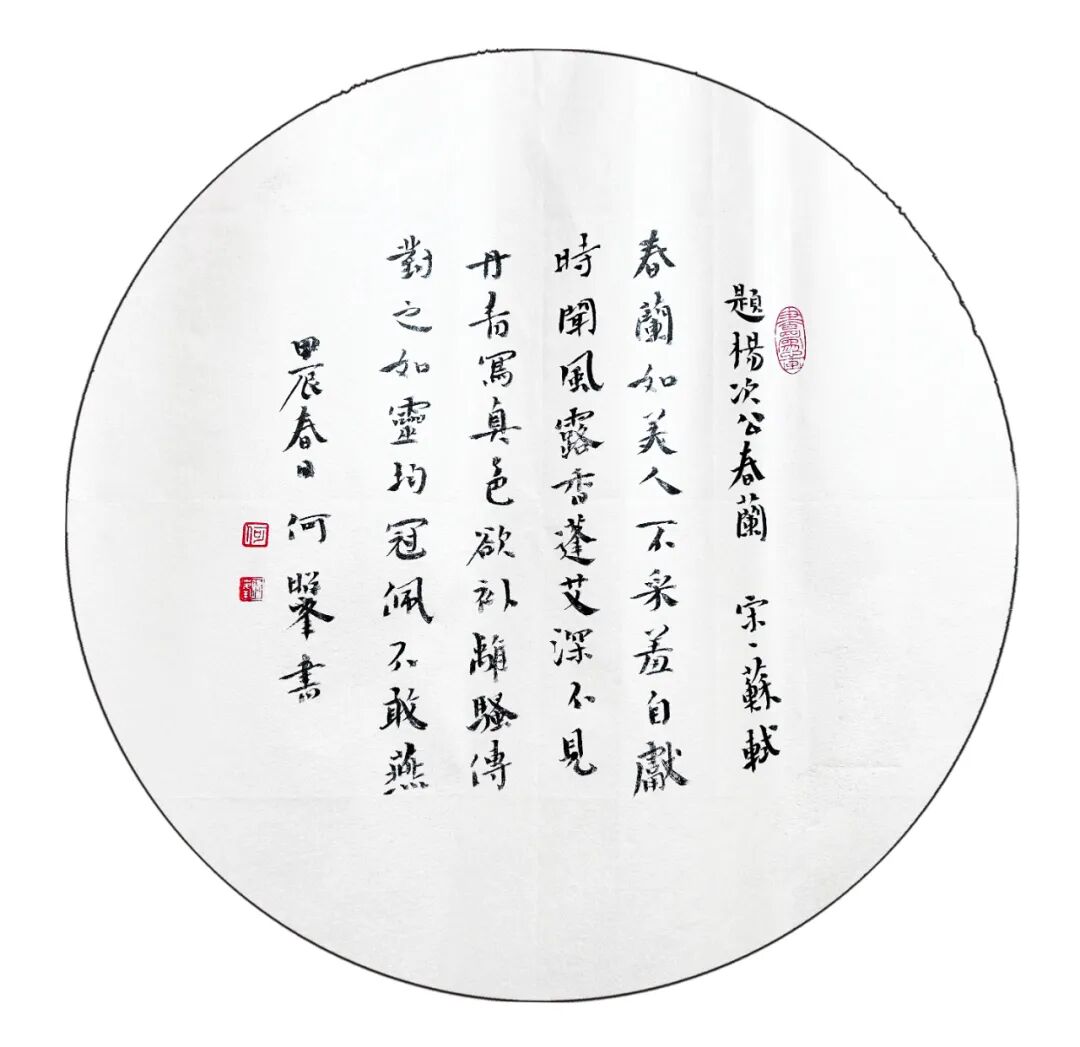 題楊次公春蘭 宋、蘇軾
春蘭如美人不采羞自獻
時聞風露香蓬艾深不見
丹青寫真色欲补離騷傳
對之如靈均冠佩不敢燕
甲辰春日何書
何